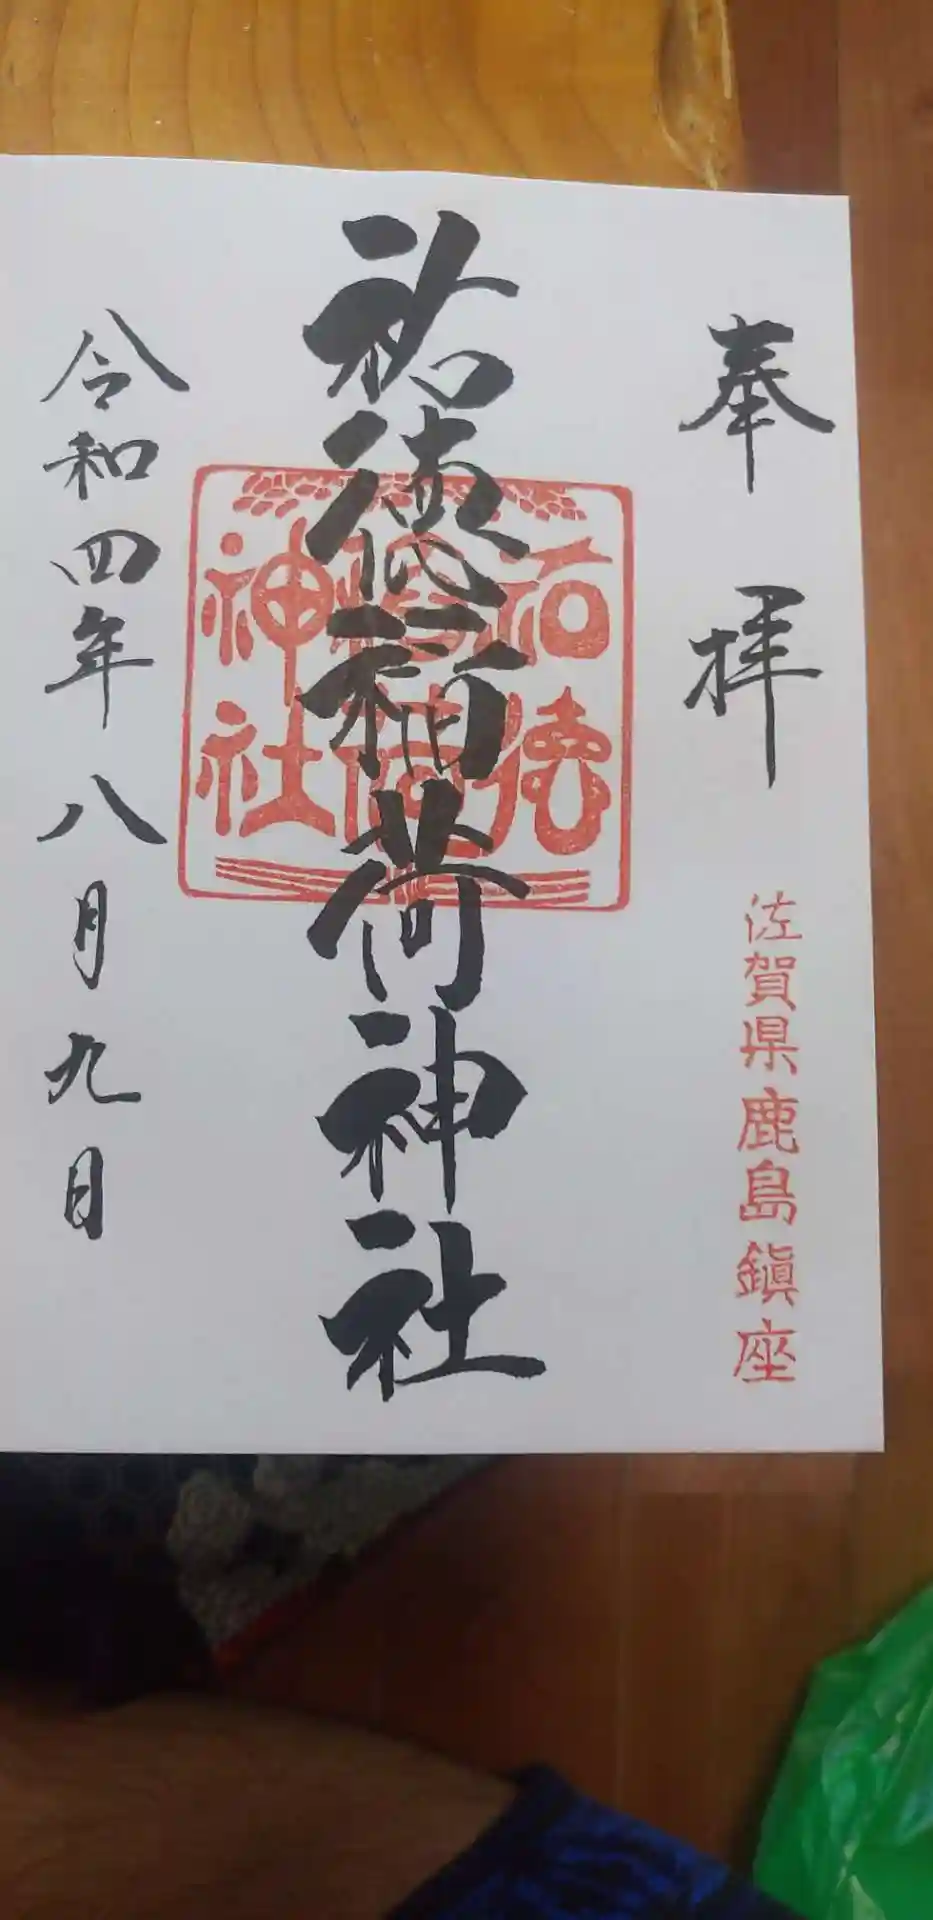 奉拝
佐賀県鹿島鎮座
祐徳稲荷神社
祐徳
稲荷
神社
令和四年八月九日